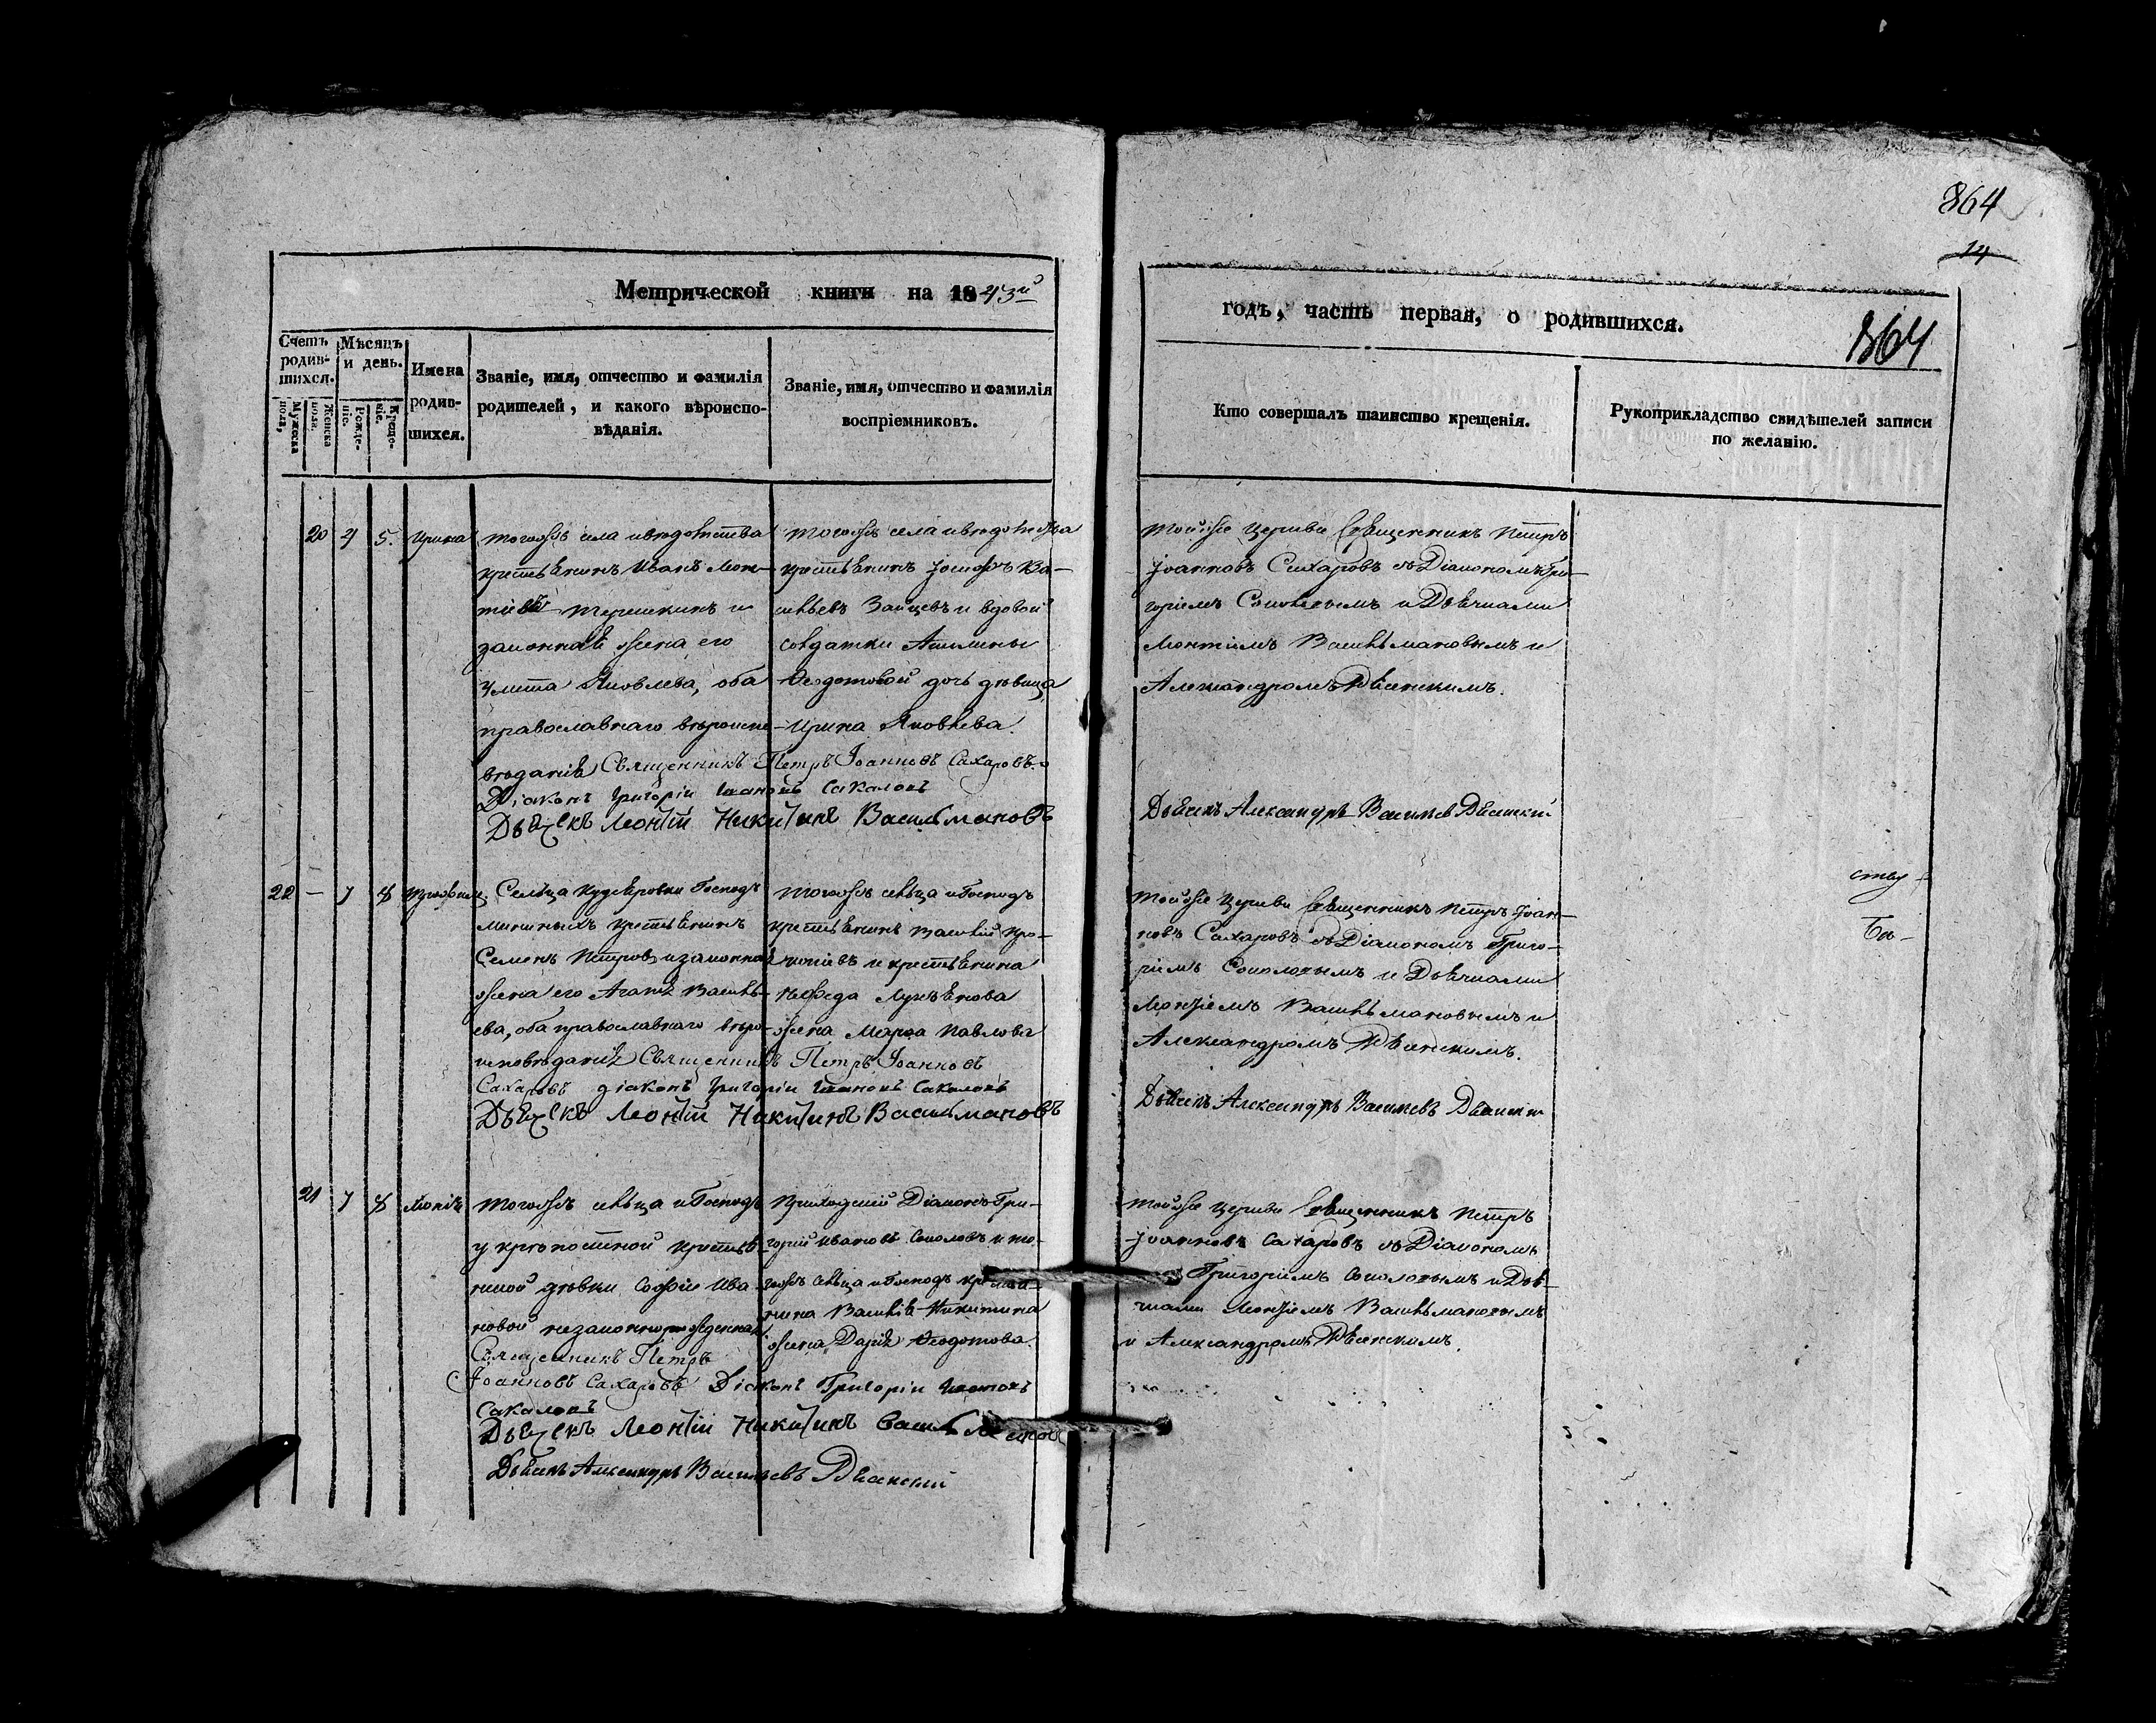 864
14
Метрической книги на 1843й
годъ, часть первая, о родившихся.
864
Счетъ родив-шихся.
Мужеска пола,
Женска пола.
Мѣсяцъ и день.
Рожде-ніе.
Креще-ніе.
Имена родив-шихся.
Званіе, имя, отчество и фамилія
родителей, и какого вѣроиспо-
вѣданія.
Званіе, имя, отчество и фамилія
воспріемниковъ.
Кто совершалъ таинство крещенія.
Рукоприкладство свидѣтелей записи
по желанію.
20 4 5. Ирина
тогожъ села и вѣдомства
крестьянинъ Иванъ Леон-
тіевъ Терешкинъ и
законная жена его
Улита Яковлева, оба
православнаго вѣроиспо-
вѣданія Священникъ Петръ Іоанновъ Сахаровъ
Діаконъ Григоріи Ивановъ Сакаловъ
Дьячекъ Леонтій Никитинъ Васильмановъ
тогожъ села и вѣдомства
крестьянинъ Іосифъ Ва-
сильевъ Зайцевъ и вдовой
солдатки Акилины
Ѳедотовой дочь дѣвица
Ирина Яковлева.
Тойже Церкви Священникъ Петръ
Іоанновъ Сахаровъ съ Діакономъ Гри-
горіемъ Соколовымъ и Дьячками
Леонтіемъ Васильмановымъ и
Александромъ
Дьячекъ Александръ Васильев
22 — 7 8
Сельца Господъ
крестьянинъ
Семенъ Петров и законная
жена его Агапія Василь-
ева, оба православнаго вѣро-
исповѣданія Священникъ Петръ Іоанновъ
Сахаровъ діаконъ Григоріи Ивановъ Сакаловъ
Дьячекъ Леонтій Никитинъ Васильмановъ
тогожъ сельца и Господъ
крестьянинъ Василій Про-
копіевъ и крестьянина
Нефеда Лукьянова
жена Марѳа Павлова
Тойже Церкви Священникъ Петръ Іоан-
новъ Сахаровъ съ Діакономъ Григо-
ріемъ Соколовымъ и Дьячками
Леонтіемъ Васильмановымъ и
Александромъ
Дьячекъ Александръ Васильевъ
ству
Ба-
21 7 8
Тогожъ сельца и Господъ
у крѣпостной крестья-
нской дѣвки Софіи Ива-
новой незаконнорожденная
Священникъ Петръ
Іоанновъ Сахаровъ Діаконъ Григоріи Ивановъ
Сакаловъ
Дьячекъ Леонтій Никитинъ
Дьячекъ Александръ Васильевъ
Приходскій Діаконъ Гри-
горій Ивановъ Соколовъ и то-
гожъ сельца и Господъ крестья-
нина Василія Никитина
жена Дарія Ѳеодотова.
Тойже Церкви Священникъ Петръ
Іоанновъ Сахаровъ съ Діакономъ
Григоріемъ Соколовымъ и Дья-
чками Леонтіемъ Васильмановымъ
и Александромъ